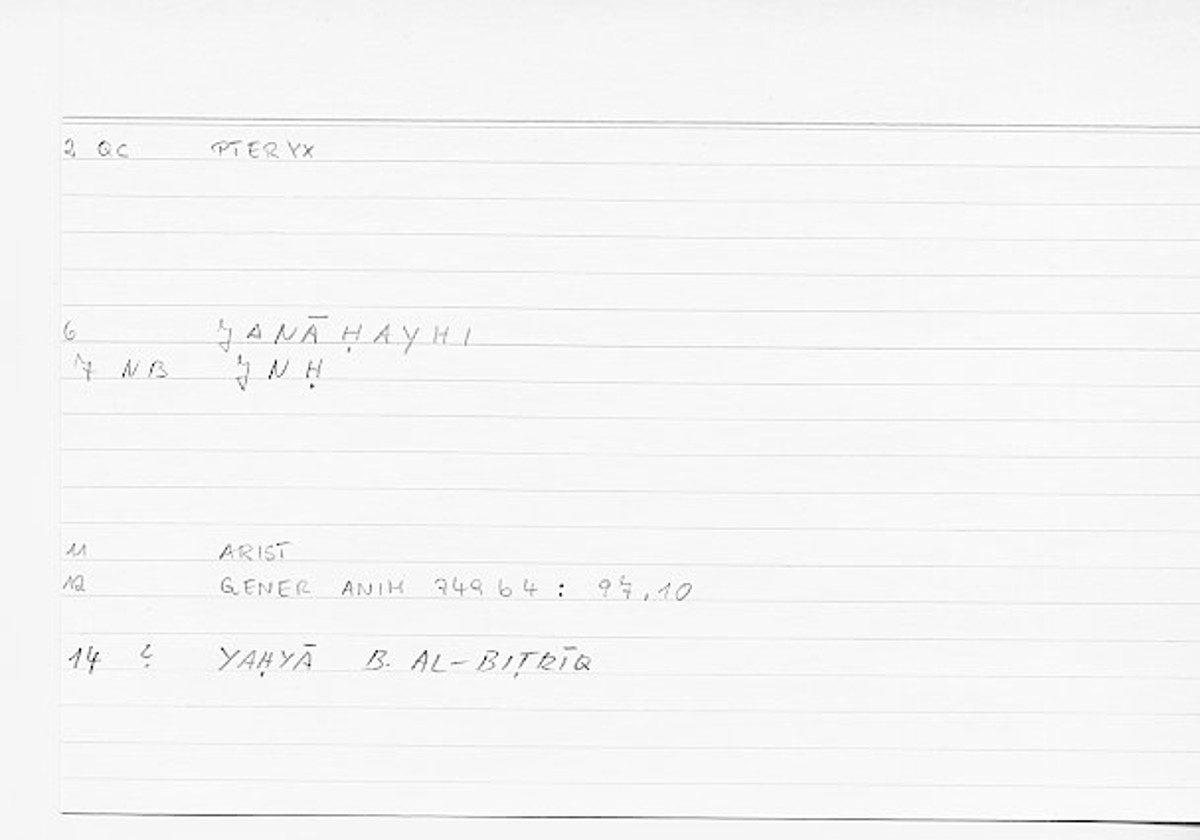 2 QC PTERYX
6 ǦANĀḤAYHI
7 NB ǦNḤ
11 ARIST
12 GENER ANIM 749 b 4 : 97,10
14 ? YAḤYĀ B. AL-BIṬRĪQ